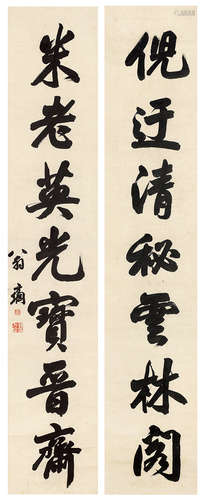 倪迂清秘雲林閣
米老英光寶晉齋
八翁